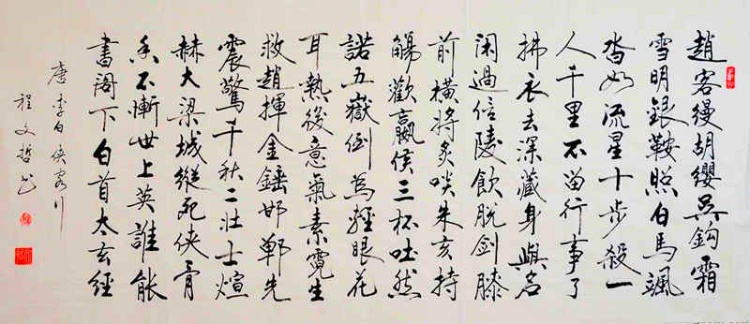 趙客縵胡纓吳鈎霜
雪明銀鞍照白馬颯
沓如流星十步殺一
人千里不留行事了
拂衣去深藏身與名
閑過信陵飲脫劍膝
前橫將炙啖朱亥持
觴勸嬴侯三杯吐然
諾五嶽倒為輕眼花
耳熱後意氣素霓生
救趙揮金錘邯鄲先
震驚千秋二壯士煊
赫大梁城縱死俠骨
香不慚世上英誰能
書閣下白首太玄經
唐李白俠客行
程文哲书